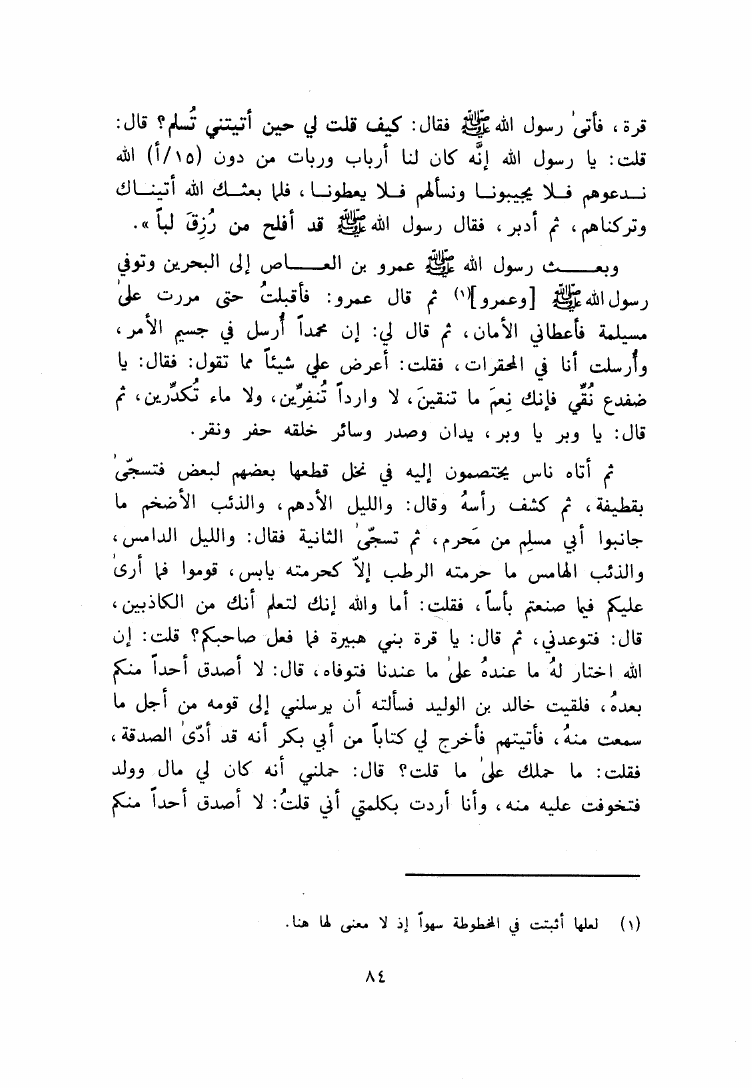 قرة ، فأتىٰ رسول الله ﷺ فقال : كيف قلت لي حين أتيتني تُسلم؟ قال :
قلت : يا رسول الله إنَّه كان لنا أرباب وربات من دون (١٥/أ) الله
نـدعوهم فـلا يجيبونـا ونسألهم فـلا يعطونـا ، فلما بعثـك الله أتينـاك
وتركناهم ، ثم أدبر ، فقال رسول الله ﷺ قد أفلح من رُزِقَ لباً » .
وبعـــث رسول الله ﷺ عمرو بن العـــاص إلى البحرين وتوفي
رسول الله ﷺ [وعمرو](١) ثم قال عمرو : فأقبلتُ حتى مررت علىٰ
مسيلمة فأعطاني الأمان ، ثم قال لي : إن محمداً أُرسل في جسيم الأمر ،
وأُرسلت أنا في المحقرات ، فقلت : أعرض علي شيئاً مما تقول : فقال : يا
ضفدع نُقِّي فإنك نِعمَ ما تنقينَ ، لا وارداً تُنفِرِّين ، ولا ماء تُكدِّرين ، ثم
قال : يا وبر يا وبر ، يدان وصدر وسائر خلقه حفر ونقر .
ثم أتاه ناس يختصمون إليه في نخل قطعها بعضهم لبعض فتسجّىٰ
بقطيفة ، ثم كشف رأسهُ وقال : والليل الأدهم ، والذئب الأضخم ما
جانبوا أبي مسلِم من مَحرم ، ثم تسجّىٰ الثانية فقال : والليل الدامس ،
والذئب الهامس ما حرمته الرطب إلاّ كحرمته يابس ، قوموا فما أرىٰ
عليكم فيما صنعتم بأساً ، فقلت : أما والله إنك لتعلم أنك من الكاذبين ،
قال : فتوعدني ، ثم قال : يا قرة بني هبيرة فما فعل صاحبكم؟ قلت : إن
الله اختار لهُ ما عندهُ علىٰ ما عندنا فتوفاه ، قال : لا أصدق أحداً منكم
بعدهُ ، فلقيت خالد بن الوليد فسألته أن يرسلني إلى قومه من أجل ما
سمعت منهُ ، فأتيتهم فأخرج لي كتاباً من أبي بكر أنه قد أدّىٰ الصدقة ،
فقلت : ما حملك علىٰ ما قلت؟ قال : حملني أنه كان لي مال وولد
فتخوفت عليه منه ، وأنا أردت بكلمتي أني قلتُ : لا أصدق أحداً منكم
(١) لعلها أثبتت في المخطوطة سهواً إذ لا معنى لها هنا .
٨٤